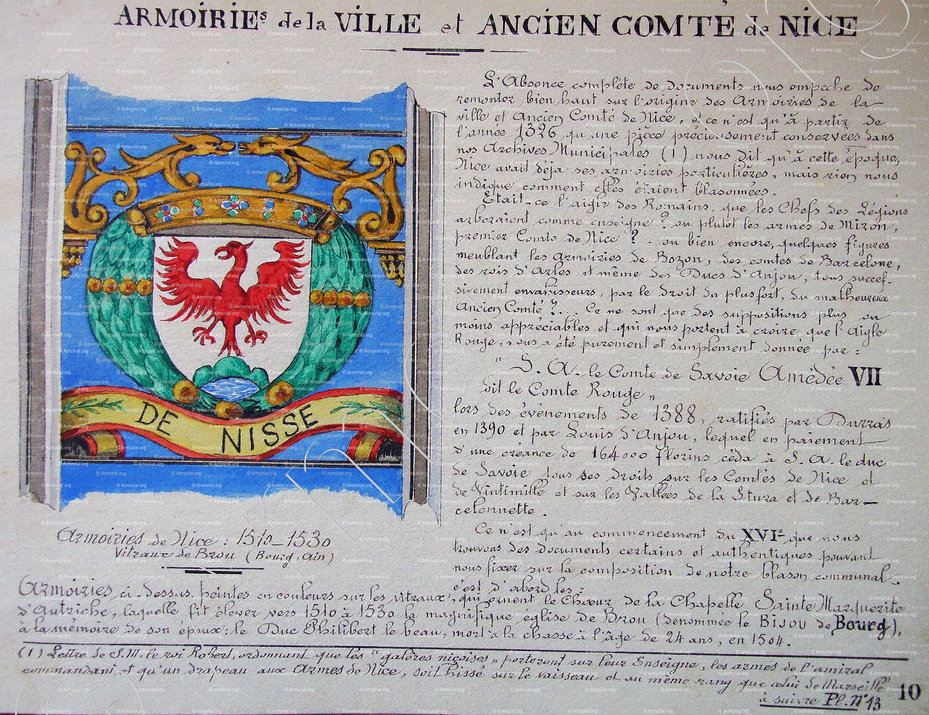 ARMOIRIEs de la VILLE et ANCIEN COMTÉ de NICE
L'Absence complète de documents nous empeche de
remonter bien haut sur l'origine des Armoiries de la
ville et Ancien Comté de Nice, et ce n'est qu'à partir de
l'année 1326 qu'une pièce précieusement conservées dans
nos Archives Municipales (1) nous dit qu'à cette époque,
Nice avait déja ses armoiries particulières, mais rien nous
indique comment elles étaient blasonnées.
Etait-ce l'aigle des Romains, que les Chefs des Légions
arboraient comme enseigne? ou plutôt les armes de Miron,
premier Comte de Nice? - ou bien encore, quelques figures
meublant les armoiries de Bozon, des comtes de Barcelone,
des rois d'Arles et même des Ducs d'Anjou, tous succes-
sivement envahisseurs, par le droit du plus fort, du malheureux
Ancien Comté?... Ce ne sont que des suppositions plus ou
moins appréciables et qui nous portent à croire, que l'Aigle
Rouge, nous a été purement et simplement donnée par:
" S. A. le Comte de Savoie Amédée VII
dit le Comte Rouge "
lors des évenements de 1388, ratifiés par Durras
en 1390 et par Louis d'Anjou, lequel en paiement
d'une créance de 164000 florins céda à S. A. le duc
de Savoie tous ses droits sur les Comtés de Nice et
de Vintimille et sur les Vallées de la Stura et de Bar-
celonnette.
Ce n'est qu'au commencement du XVIe que nous
trouvons des documents certains et authentiques pouvant
nous fixer sur la composition de notre blason communal.
c'est d'abord les:
DE NISSE
Armoiries de Nice: 1510-1530
Vitraux de Brou (Bourg, Ain)
Armoiries, ci-dessus, peintes en couleurs sur les vitraux, qui ornent le Chœur de la Chapelle Sainte Marguerite
d'Autriche, laquelle fit élever vers 1510 à 1530 la magnifique église de Brou (denommée le Bijou de Bourg),
à la mémoire de son époux: le Duc Philibert le beau, mort à la chasse à l'âge de 24 ans, en 1504.
(1) Lettre de S.M. le roi Robert, ordonnant que les "galères niçoises" porteront sur leur Enseigne, les armes de l'amiral
commandant et qu'un drapeau aux Armes de Nice, soit hissé sur le vaisseau et au même rang que celui de Marseille
à suivre Pl. N° 13
10
© Armorial.org